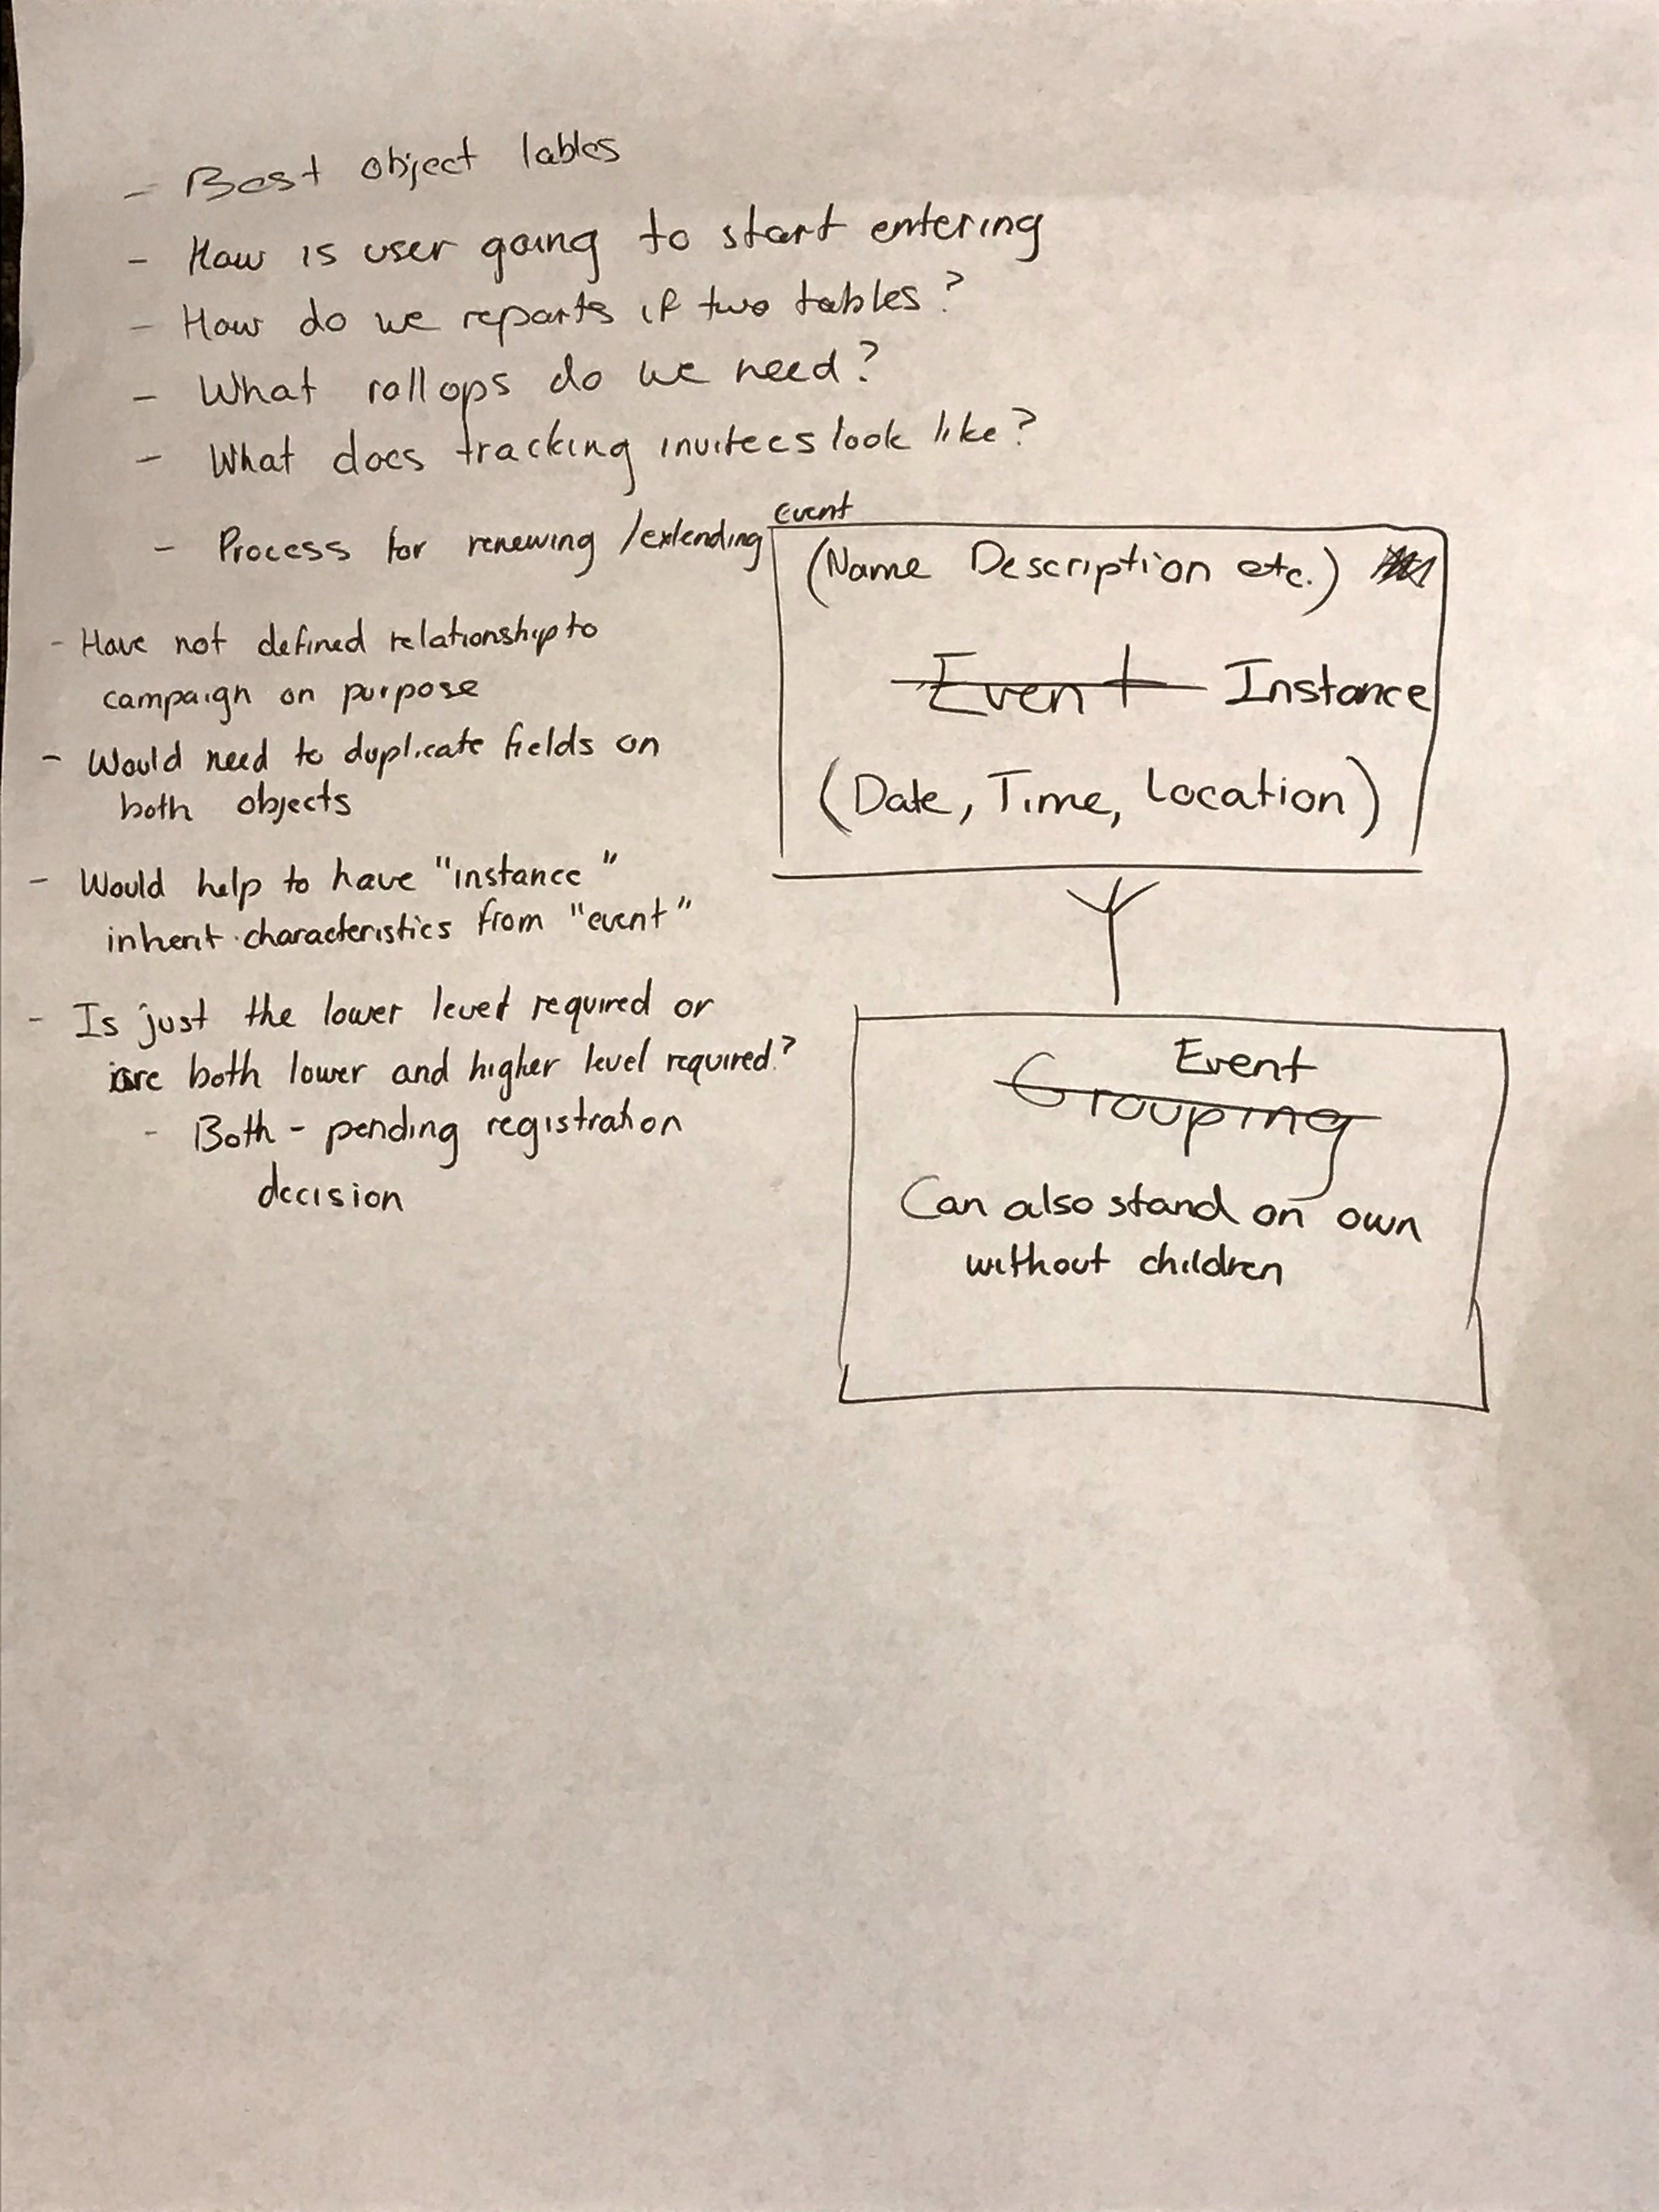 - Best object lables
- How is user going to start entering
- How do we reports if two tables?
- What rollops do we need?
- What does tracking invitees look like?
- Process for renewing /extending
- Have not defined relationship to
campaign on purpose
- Would need to duplicate fields on
both objects
- Would help to have "instance"
inherit characteristics from "event"
- Is just the lower level required or
are both lower and higher level required?
- Both - pending registration
decision
Event
(Name Description etc.)
Event Instance
(Date, Time, Location)
Event
Grouping
Can also stand on own
without children